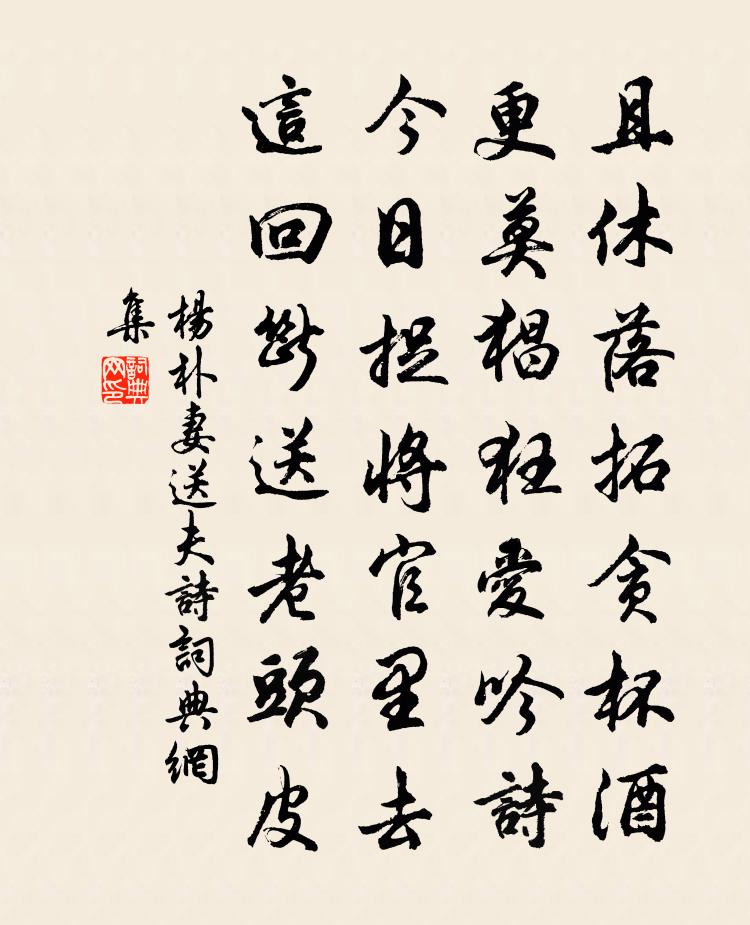 且休落拓貪杯酒
更莫猖狂愛吟詩
今日捉將官里去
這回斷送老頭皮
楊朴妻送夫詩詞典網
集
詞典
网印